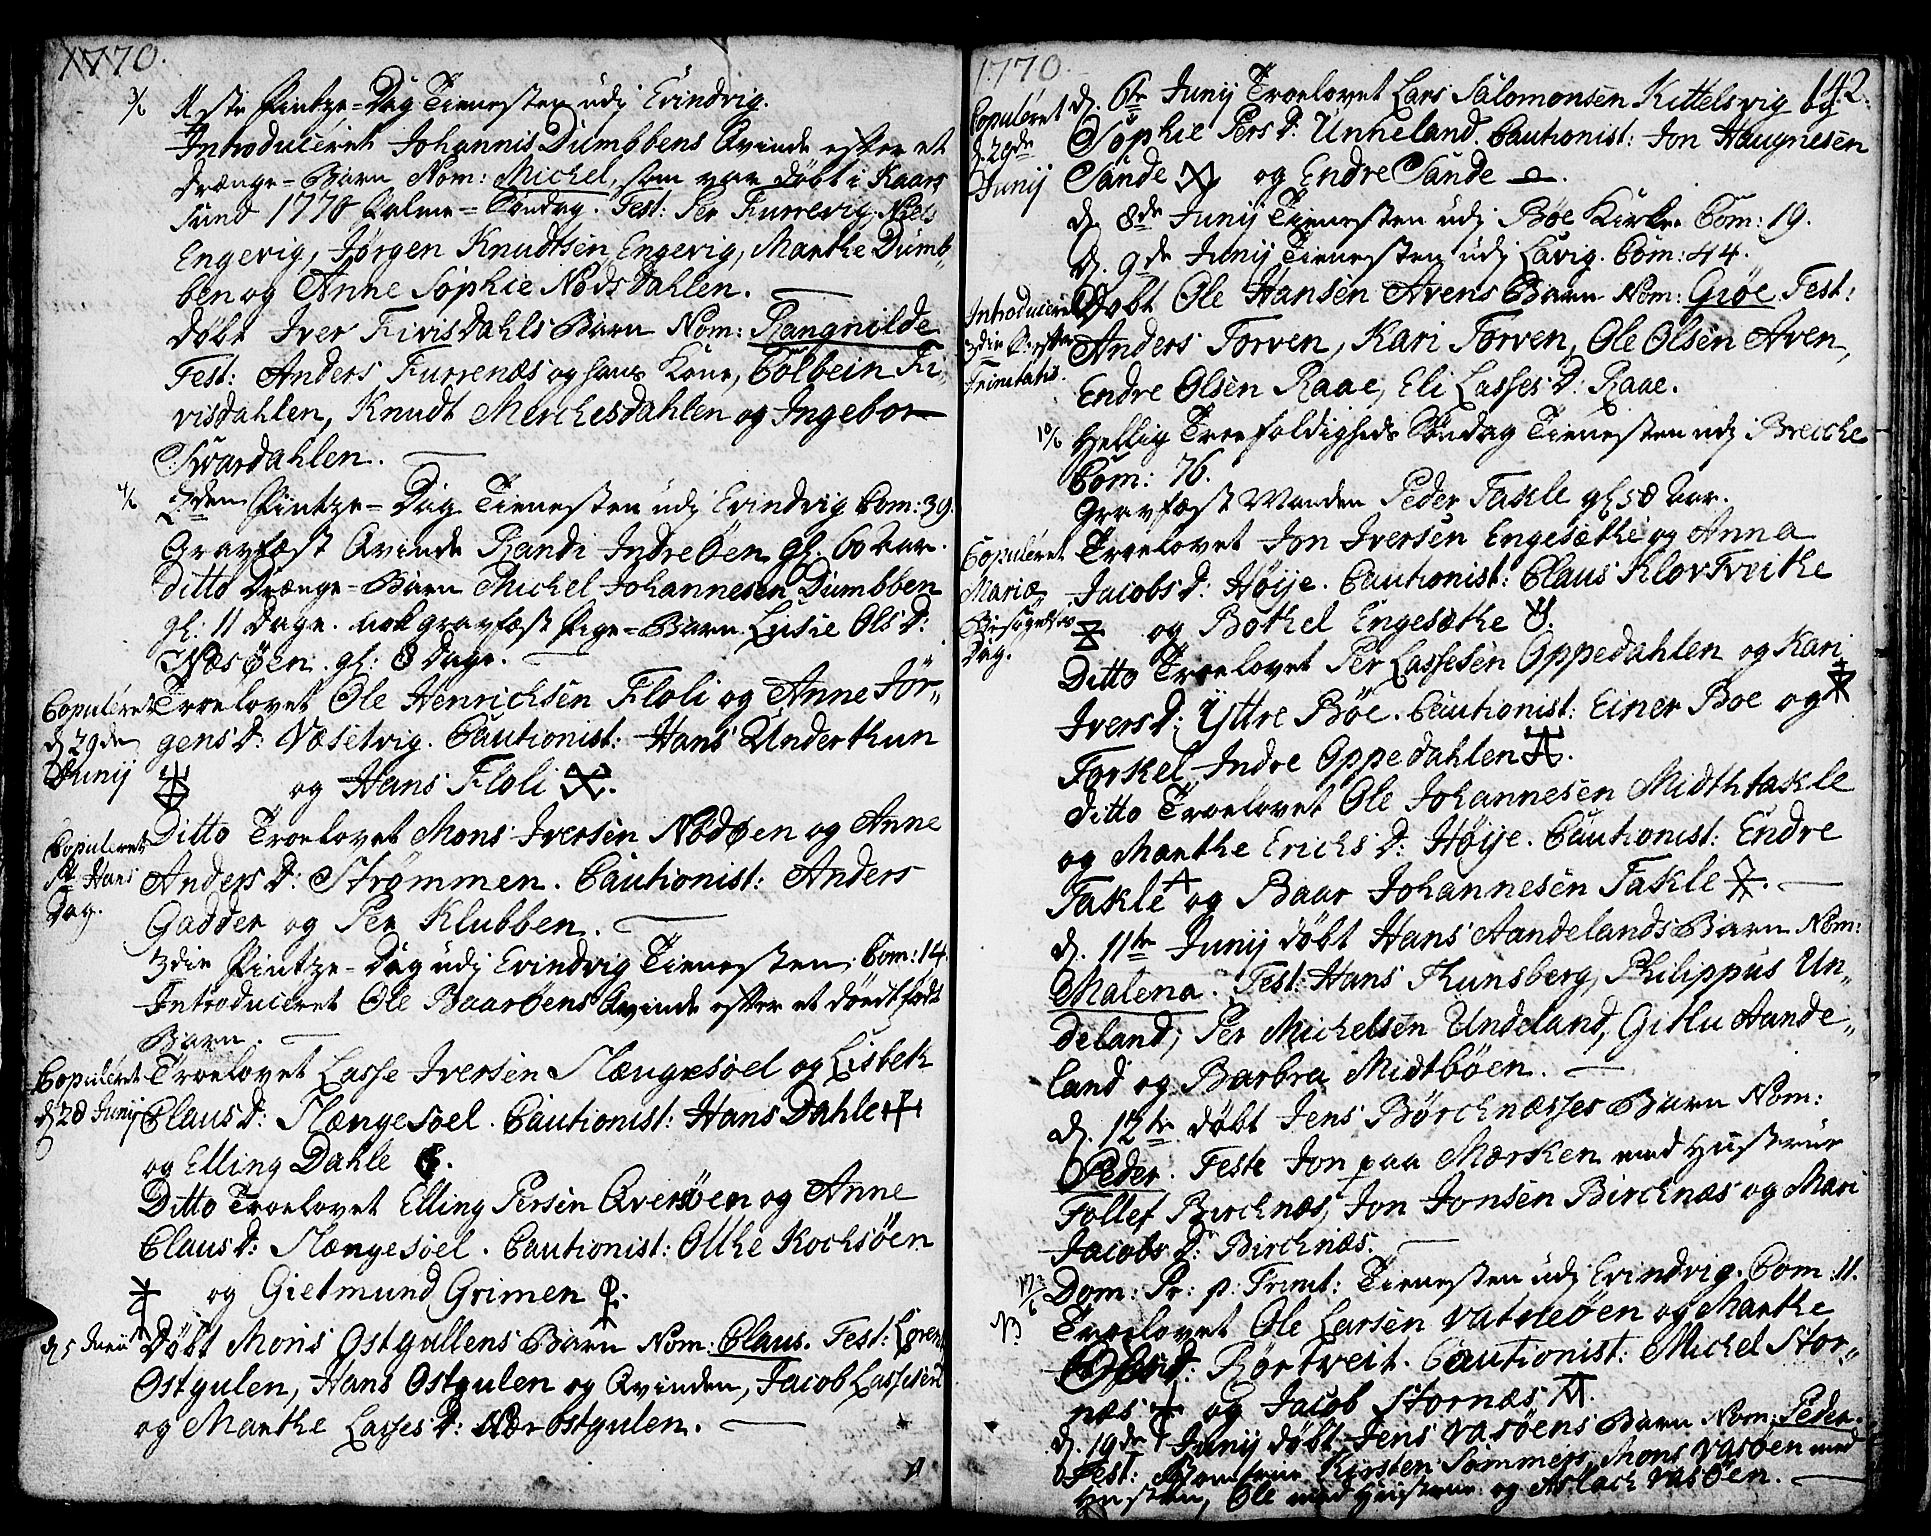 1770.
3/6 1ste Pintze-Dag Tienesten udj Evindvig.
Introduceret Johannis Dumbbens Qvinde efter et
Drænge-Barn Nom: Michel, som var døbt i Kaars
sund 1770 Palme-Søndag. Test: Per Furrevig, Niels
Engevig, Jørgen Knudtsen Engevig, Marthe Dumb-
ben og Anne Sophie NødsDahlen.
døbt Iver FivisDahls Barn Nom: Rangnilde
Test: Anders Furrenæs og hans Kone, Colbein Fi-
visdahlen, Knudt Merchesdahlen og Ingebor
Svardahlen.
4/6 2den Pintze-Dag Tienesten udj Evindvig Com: 39.
Gravfæst Qvinde Randi Indreøen gl. 60 aar.
Ditto Drænge-Barn Michel Johannesen Dumbben
gl: 11 Dage. nok gravfæst Pige-Barn Lusie Ols D:
Næsøen. gl: 8 Dage.
Copuleret d. 29de Junij
Troelovet Ole Henrichsen Floli og Anne Jør-
gens D: Næsetvig. Cautionist: Hans Underthun
og Hans Floli
Copuleret St Hans Dag.
Ditto Troelovet Mons Iversen Nødøen og Anne
Anders D: Strømmen. Cautionist: Anders
Gadder og Per Klubben.
3die Pintze-Dag udj Evindvig Tienesten. Com: 14.
Introduceret Ole Baarøens Qvinde efter et døedtfødt
Barn.
Copuleret d. 28 Junij
Troelovet Lasse Iversen Slængesøel og Lisbeth
Claus D: Slængesøel. Cautionist: Hans Dahle
og Elling Dahle
Ditto Troelovet Elling Persen Qversøen og Anne
Claus D: Slængesøel. Cautionist: Otthe Kochsøen
og Gietmund Grimen
d. 5 Junij Døbt Mons Ostgullens Barn Nom: Claus. Test:
Ostgulen, Hans Ostgulen og Qvinden, Jacob Lassesen
og Marthe Lasses D: Nær Ostgulen.
1770. 142.
Copuleret d. 29de Junij
d. 6te Junij Troelovet Lars Salomonsen Kittelsvig og
Sophie Pers D: Unneland. Cautionist: Jon Haugnesen
Sande og Endre Sande
d. 8de Junij Tienesten udj Bøe Kirke Com: 19.
d. 9de Junij Tienesten udj Lavig. Com: 44.
Introduceret 3die S. efter Trinitatis.
Døbt Ole Hansen Avens Barn Nom: Giøe Test:
Anders Torven, Kari Torven, Ole Olsen Aven,
Endre Olsen Raae, Eli Lasses D: Raae.
10/6 Hellig Treefoldigheds Søndag Tienesten udj Breiche
Com: 76.
Gravfæst Manden Peder Takle gl 58 Aar.
Copuleret Mariæ Besøgelses Dag.
Troelovet Jon Iversen Engesæthe og Anna
Jacobs D: Høije. Cautionist: Claus KlovTveithe
og Bothel Engesæthe
Ditto Troelovet Per Lassesen Oppedahlen og Kari
Ivers D: Yttre Bøe. Cautionist: Einer Boe og
Torkel Indre Oppedahlen
Ditto Troelovet Ole Johannesen Midthtakle
og Marthe Erichs D: Høije. Cautionist: Endre
Takle og Baar Johannesen Takle
d. 11te Junij døbt Hans Aandelands Barn Nom:
Malena. Test: Hans Kunsberg, Philippus Un-
deland, Per Michelsen Undeland, Gitlu Aande-
land og Barbra Midtbøen.
d. 12te døbt Jens Børchnæsses Barn Nom:
Peder. Teste Jon paa Mærken med Hustrue
Tollef Birchnæs, Jon Jonsen Birchnæs og Mari
Jacobs D: Birchnæs.
17/6 Dom: Pr: p: Trinit: Tienesten udj Evindvig. Com: 11.
Troelovet Ole Larsen Vatneøen og Marthe
Ols D: Rørtveit. Cautionist: Michel Stor-
næs og Jacob Stornæs.
d. 19de Junij døbt Jens Vasøens Barn Nom: Peder.
Test: Kirsten Sommers, Mons Vasøen med
Hustru, Ole med Hustrue og Aslach Vasøen.